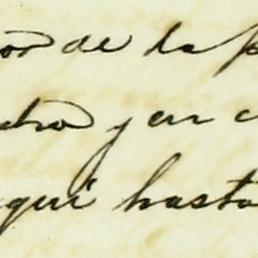 or de la
y en
qui hasta